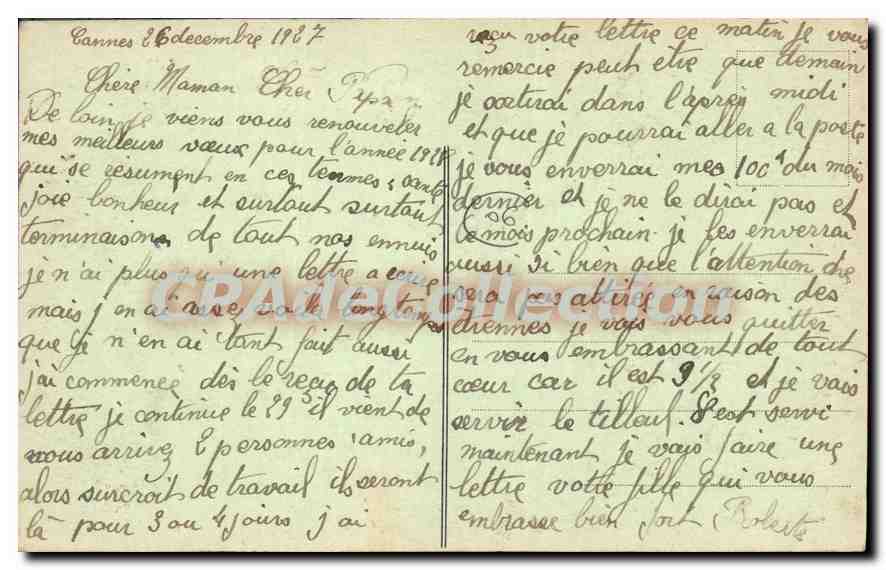 Cannes 26 decembre 1927
Chère Maman Cher Papa
De loin je viens vous renouveler
mes meilleurs vœux pour l'année 1928
qui se resument en ces termes, santé
joie bonheur et surtout surtout
terminaison de tout nos ennuis
je n'ai plus qu'une lettre a ecrire
mais j en ai assez voila longtemps
que je n'en ai tant fait aussi
j'ai commencé dès le reçu de ta
lettre je continue le 29 il vient de
nous arrivez 2 personnes amis,
alors surcroit de travail ils seront
là pour 3 ou 4 jours j ai
reçu votre lettre ce matin je vous
remercie peut être que demain
je sortirai dans l'après midi
et que je pourrai aller a la poste
je vous enverrai mes 100f du mois
dernier et je ne le dirai pas et
le mois prochain je les enverrai
aussi si bien que l'attention
sera pas attirée en raison des
étrennes je vais vous quitter
en vous embrassant de tout
cœur car il est 9 1/2 et je vais
servir le tilleul. C'est servi
maintenant je vais faire une
lettre votre fille qui vous
embrasse bien fort Roberte
86
CPAdeCollection